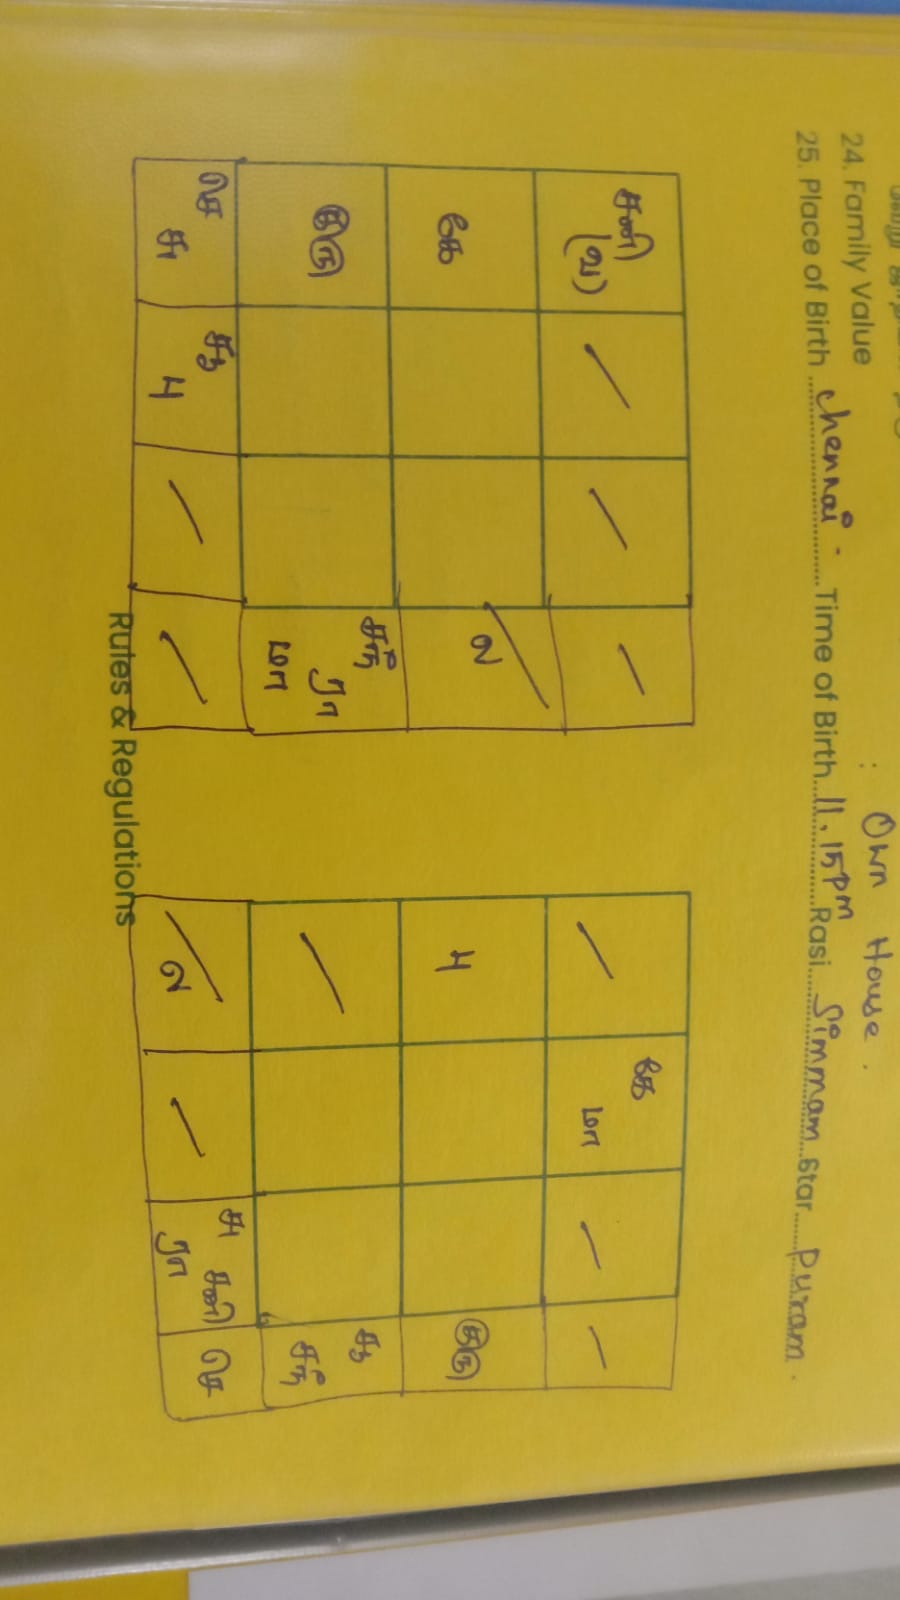 24. Family Value : Own House.
25. Place of Birth chennai - Time of Birth 11.15pm Rasi Simmam Star Puram.
சனி (வ) / / /
கே ல
குரு சந் ரா மா
செ சு சுக பு / /
/ கே மா / /
பு குரு
/ சுக சந்
ல / சு சனி ரா செ
Rules & Regulations